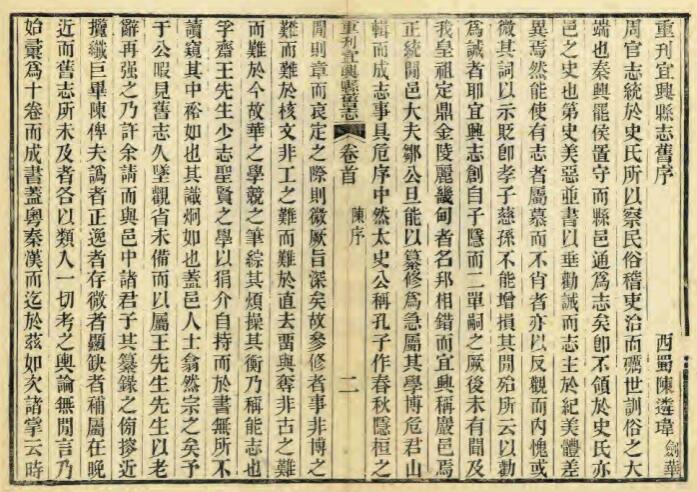 重刊宜興縣志舊序
西蜀陳遴瑋 劍華
周官志統於史氏所以察民俗稽吏治而礪世訓俗之大
端也秦興罷侯置守而縣邑通爲志矣卽不領於史氏亦
邑之史也第史美惡並書以垂勸誡而志主於紀美體差
異焉然能使有志者屬慕而不肖者亦以反觀而內愧或
微其詞以示貶卽孝子慈孫不能增損其閒殆所云以勸
爲誠者耶宜興志創自子隱而二單嗣之厥後未有聞及
我皇祖定鼎金陵麗畿甸者名邦相錯而宜興稱巖邑焉
正統閒邑大夫鄒公旦能以纂修爲急屬其學博危君山
輯而成志事具危序中然太史公稱孔子作春秋隱桓之
重刊宜興縣舊志 卷首 陳序 二
閒則章而哀定之際則微厥旨深矣故參修者事非博之
難而難於核文非工之難而難於直去罾與奪非古之難
而難於今故華之學競之筆綜其煩操其衡乃稱能志也
孚齋王先生少志聖賢之學以狷介自持而於書無所不
讀窺其中裕如也其識炯如也蓋邑人士翕然宗之矣予
于公暇見舊志久墜觀省未備而以屬王先生先生以老
辭再强之乃許余請而與邑中諸君子其纂錄之傍搜近
攟纖巨畢陳俾夫譌者正逸者存微者顯缺者補屬在晚
近而舊志所未及者各以類人一切考之輿論無閒言乃
始彙爲十卷而成書蓋粵秦漢而迄於茲如次諸掌云時